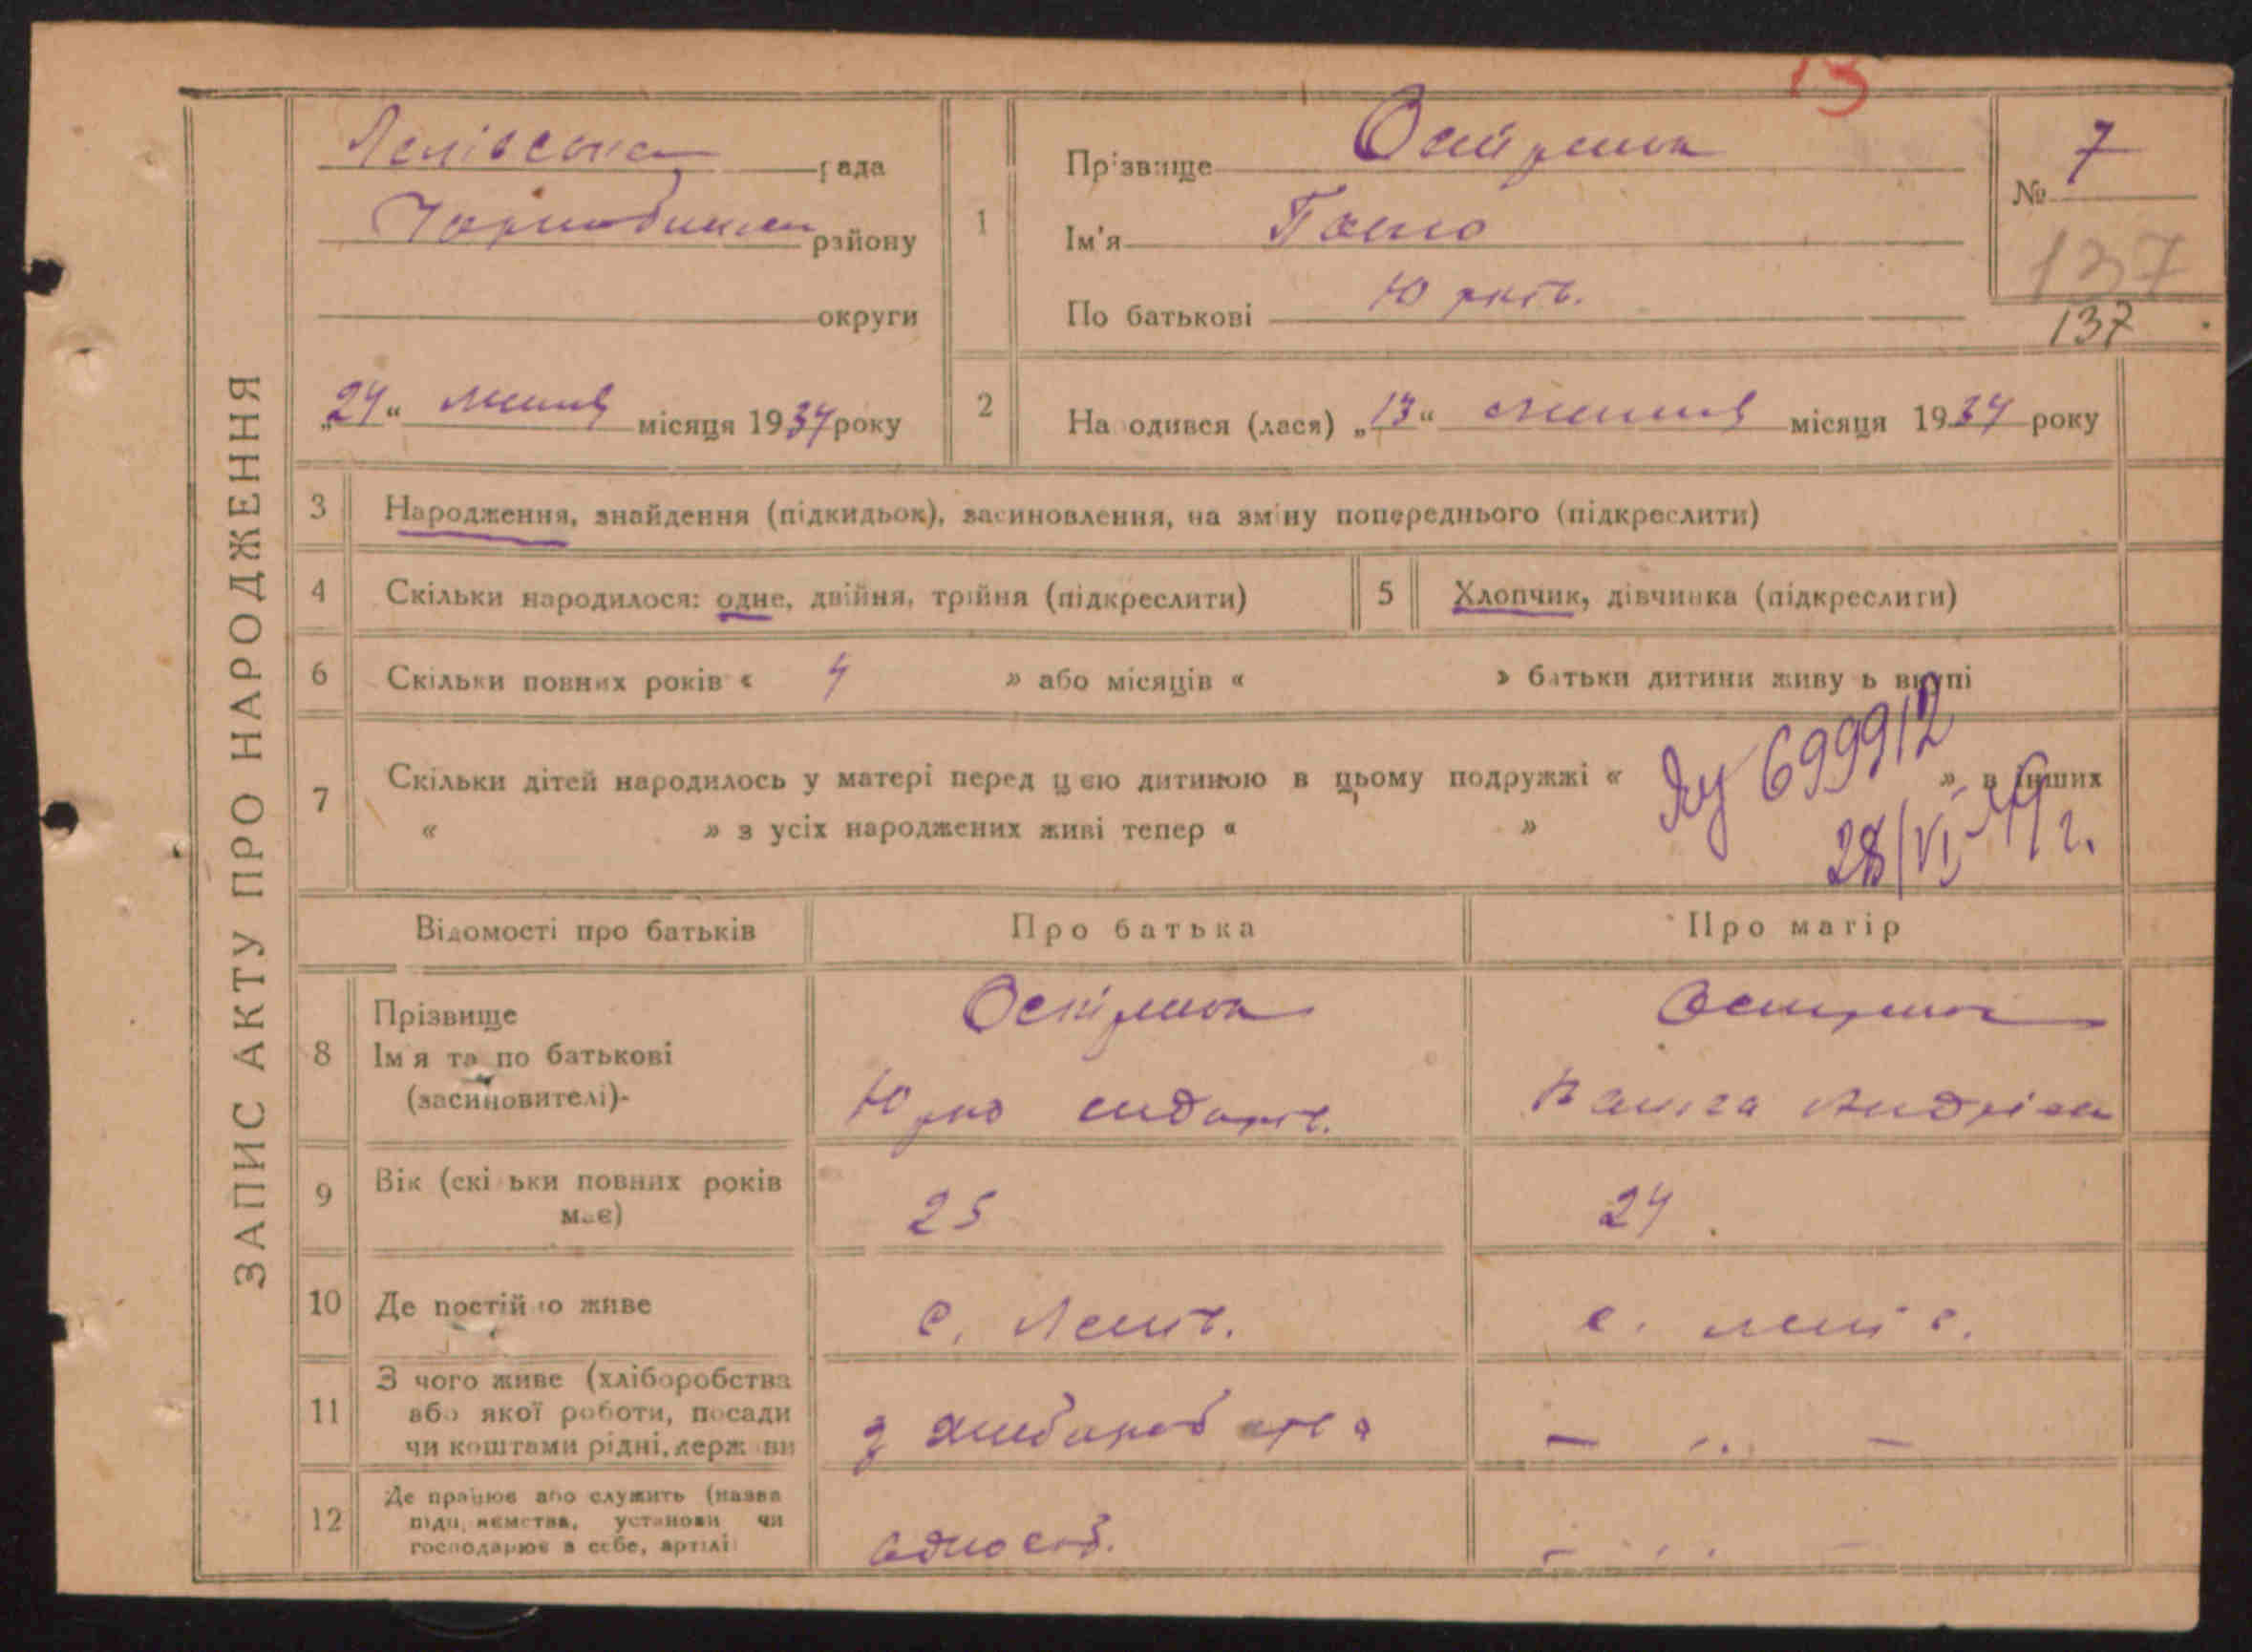 ЗАПИС АКТУ ПРО НАРОДЖЕННЯ
13
рада
району
округи
„24“ липня місяця 1934 року
1
Прізвище
Ім'я
По батькові Юрків.
№ 7
137
137
2
Народився (лася) „13“ липня місяця 1934 року
3 Народження, знайдення (підкидьок), засиновлення, на зміну попереднього (підкреслити)
4 Скільки народилося: одне, двійня, трійня (підкреслити)
5 Хлопчик, дівчинка (підкреслити)
6 Скільки повних років « 4 » або місяців « » батьки дитини живуть вкупі
7 Скільки дітей народилось у матері перед цією дитиною в цьому подружжі « », в інших
« » з усіх народжених живі тепер « »
699912
28/VI
Відомості про батьків
Про батька
Про матір
8 Прізвище
Ім'я та по батькові
(засиновителі)-
Юрко Сидорів.
Андріев
9 Вік (скільки повних років
має)
25
24
10 Де постійно живе
с. Лелів.
с. Лелів.
11 З чого живе (хліборобства
або якої роботи, посади
чи коштами рідні, держави
з хліборобства
— „ —
12 Де працює або служить (назва
підприємства, установи чи
господарює в себе, артілі
одноосіб.
— „ —